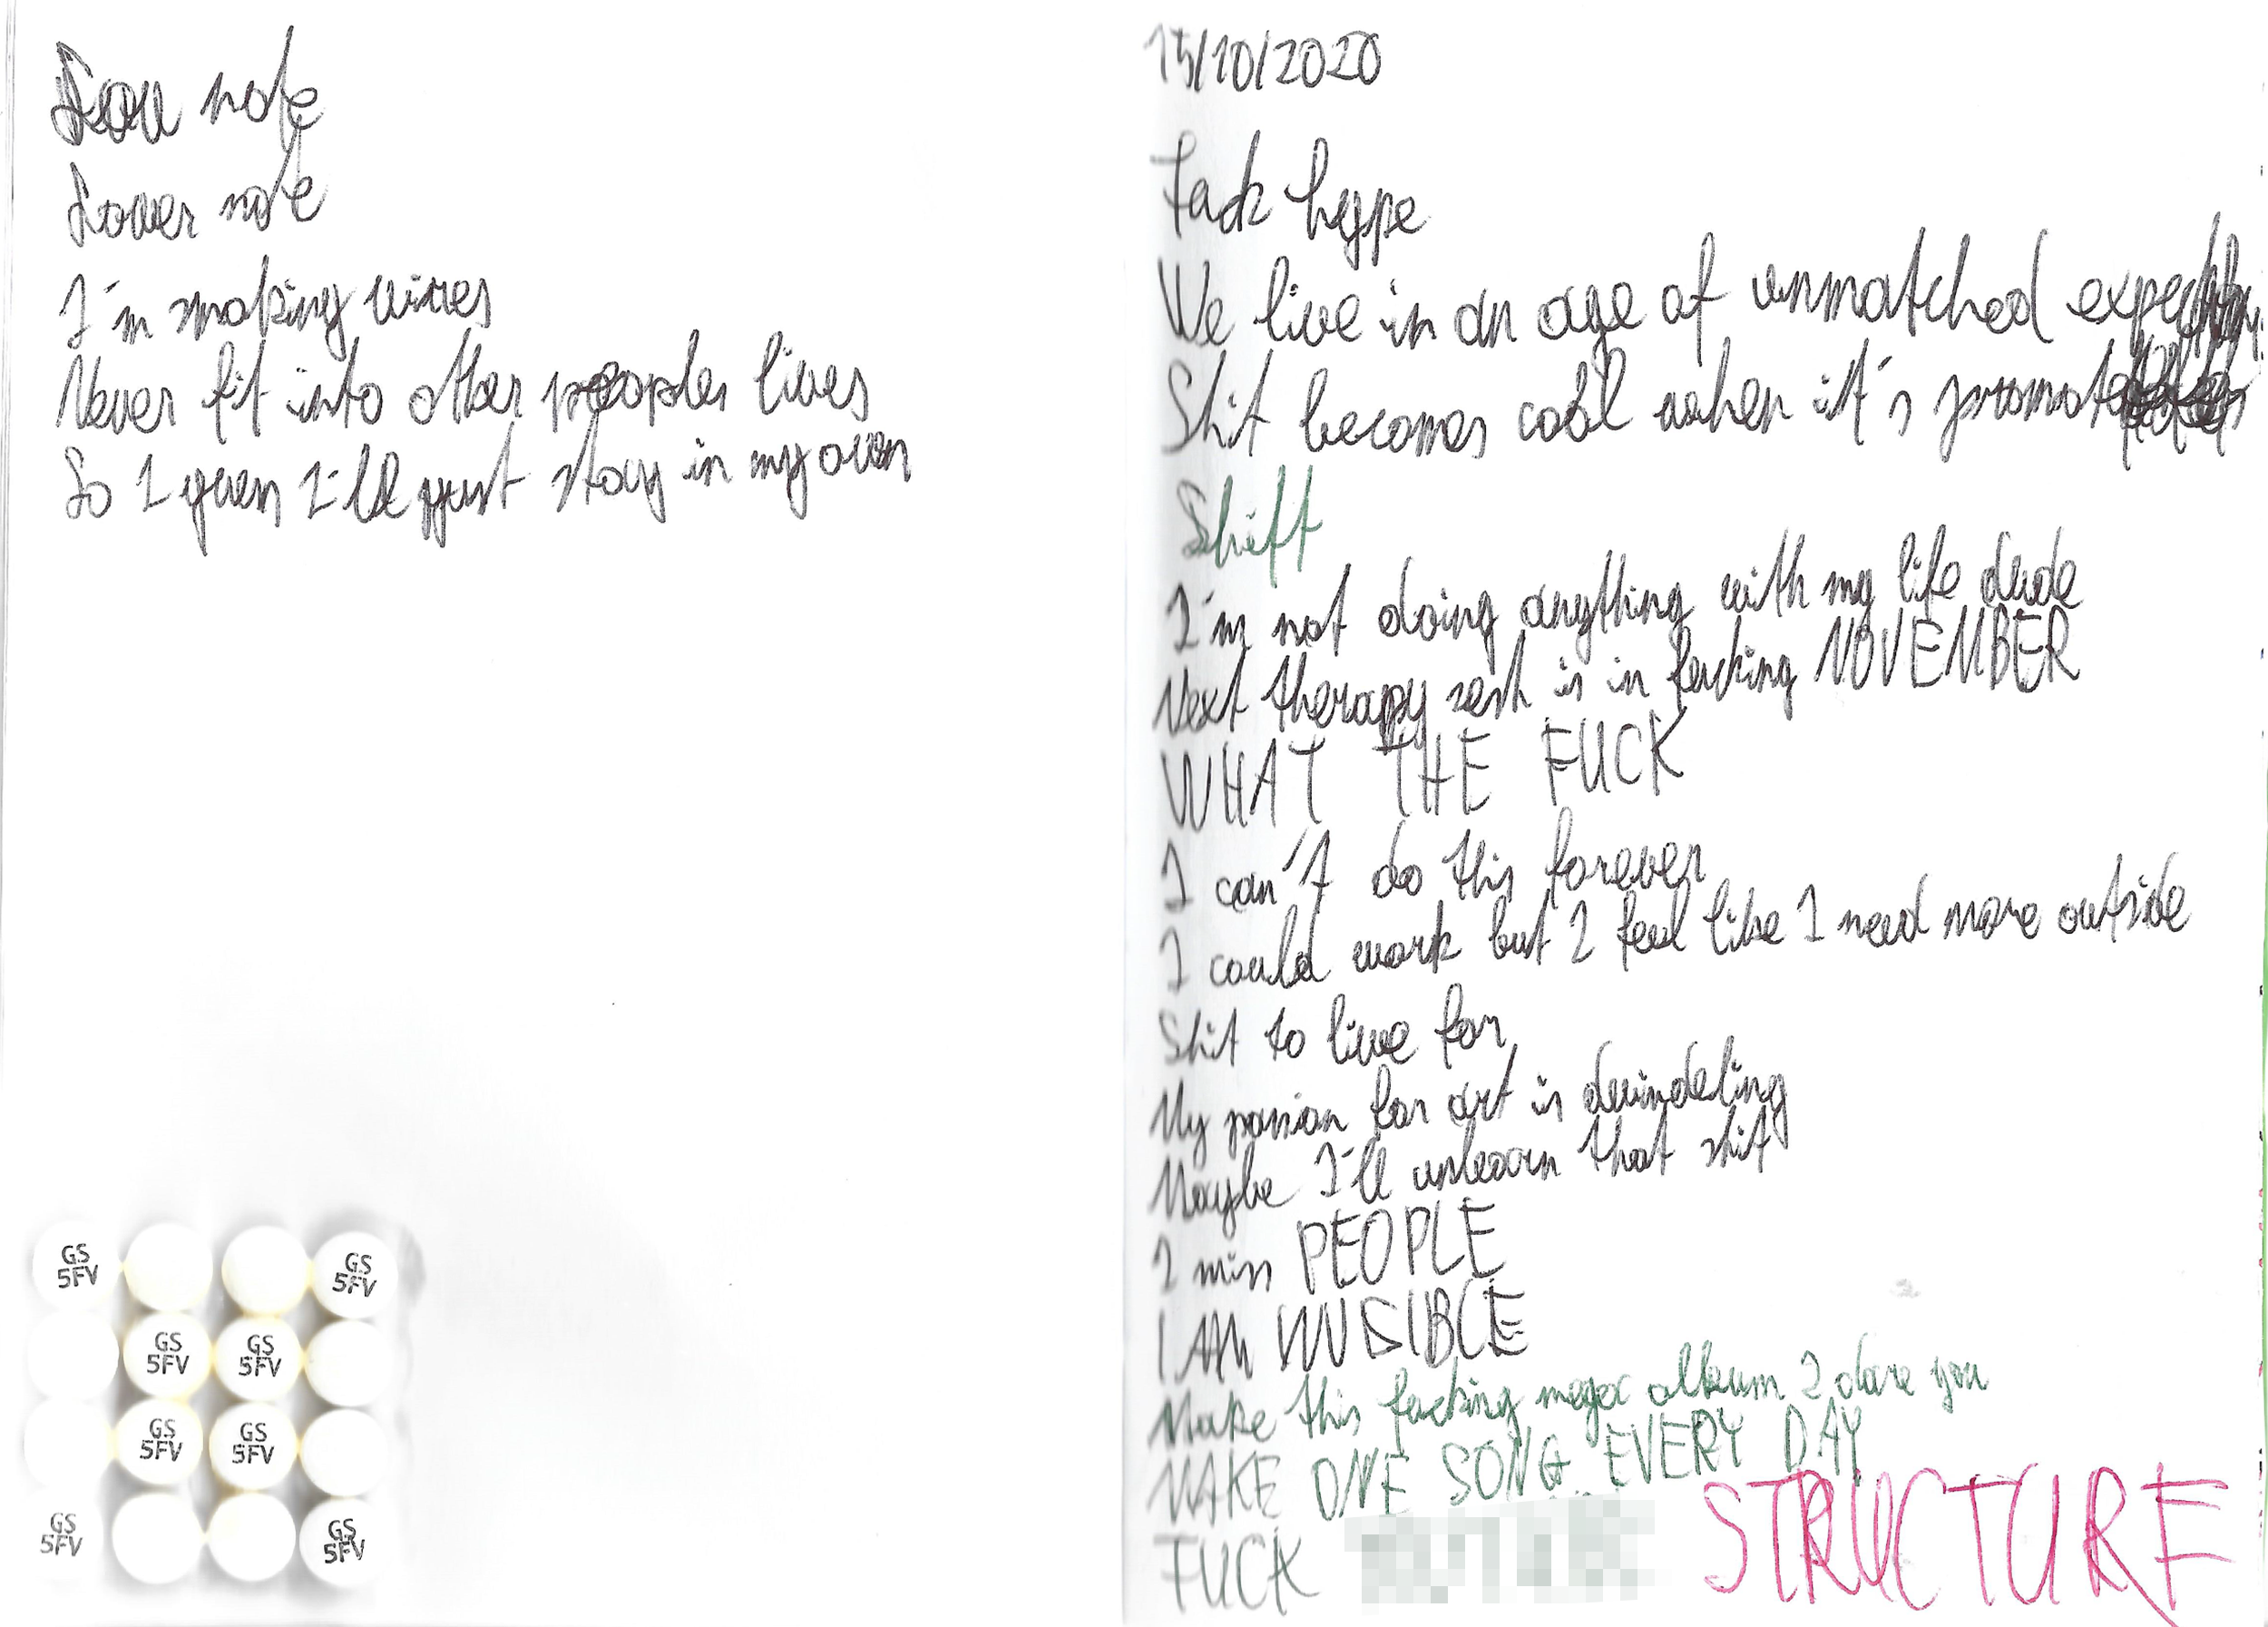 Low note
Lower note
I'm smoking wires
Never fit into other peoples lives
So I guess I'll just stay in my own
GS
5FV
GS
5FV
GS
5FV
GS
5FV
GS
5FV
GS
5FV
GS
5FV
GS
5FV
15/10/2020
Fuck hype
We live in an age of unmatched
Shit becomes cool when it's
Shift
I'm not doing anything with my life dude
Next therapy sesh is in fucking NOVEMBER
WHAT THE FUCK
I can't do this forever
I could work but I feel like I need more outside
Shit to live for
My passion for art is dwindeling
Maybe I'll unlearn that shit
I miss PEOPLE
I AM INVISIBLE
Make this fucking mega album I dare you
MAKE ONE SONG EVERY DAY
FUCK STRUCTURE